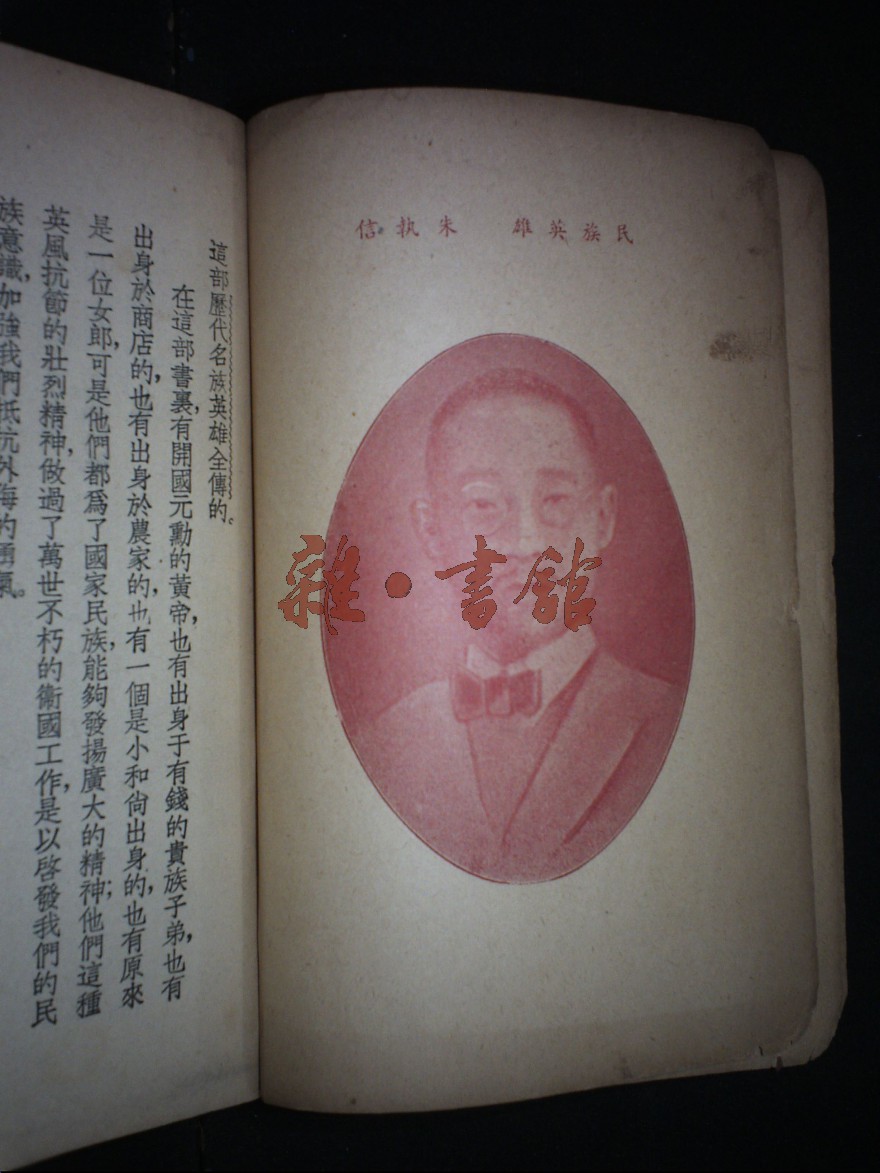 這部歷代名族英雄全傳的。
在這部書裏,有開國元勳的黃帝,也有出身于有錢的貴族子弟,也有
出身於商店的,也有出身於農家的,也有一個是小和尙出身的,也有原來
是一位女郎,可是他們都爲了國家民族,能夠發揚廣大的精神;他們這種
英風抗節的壯烈精神,做過了萬世不朽的衞國工作,是以啓發我們的民
族意識,加強我們抵抗外侮的勇氣。
民族英雄 朱執信
雜·書館